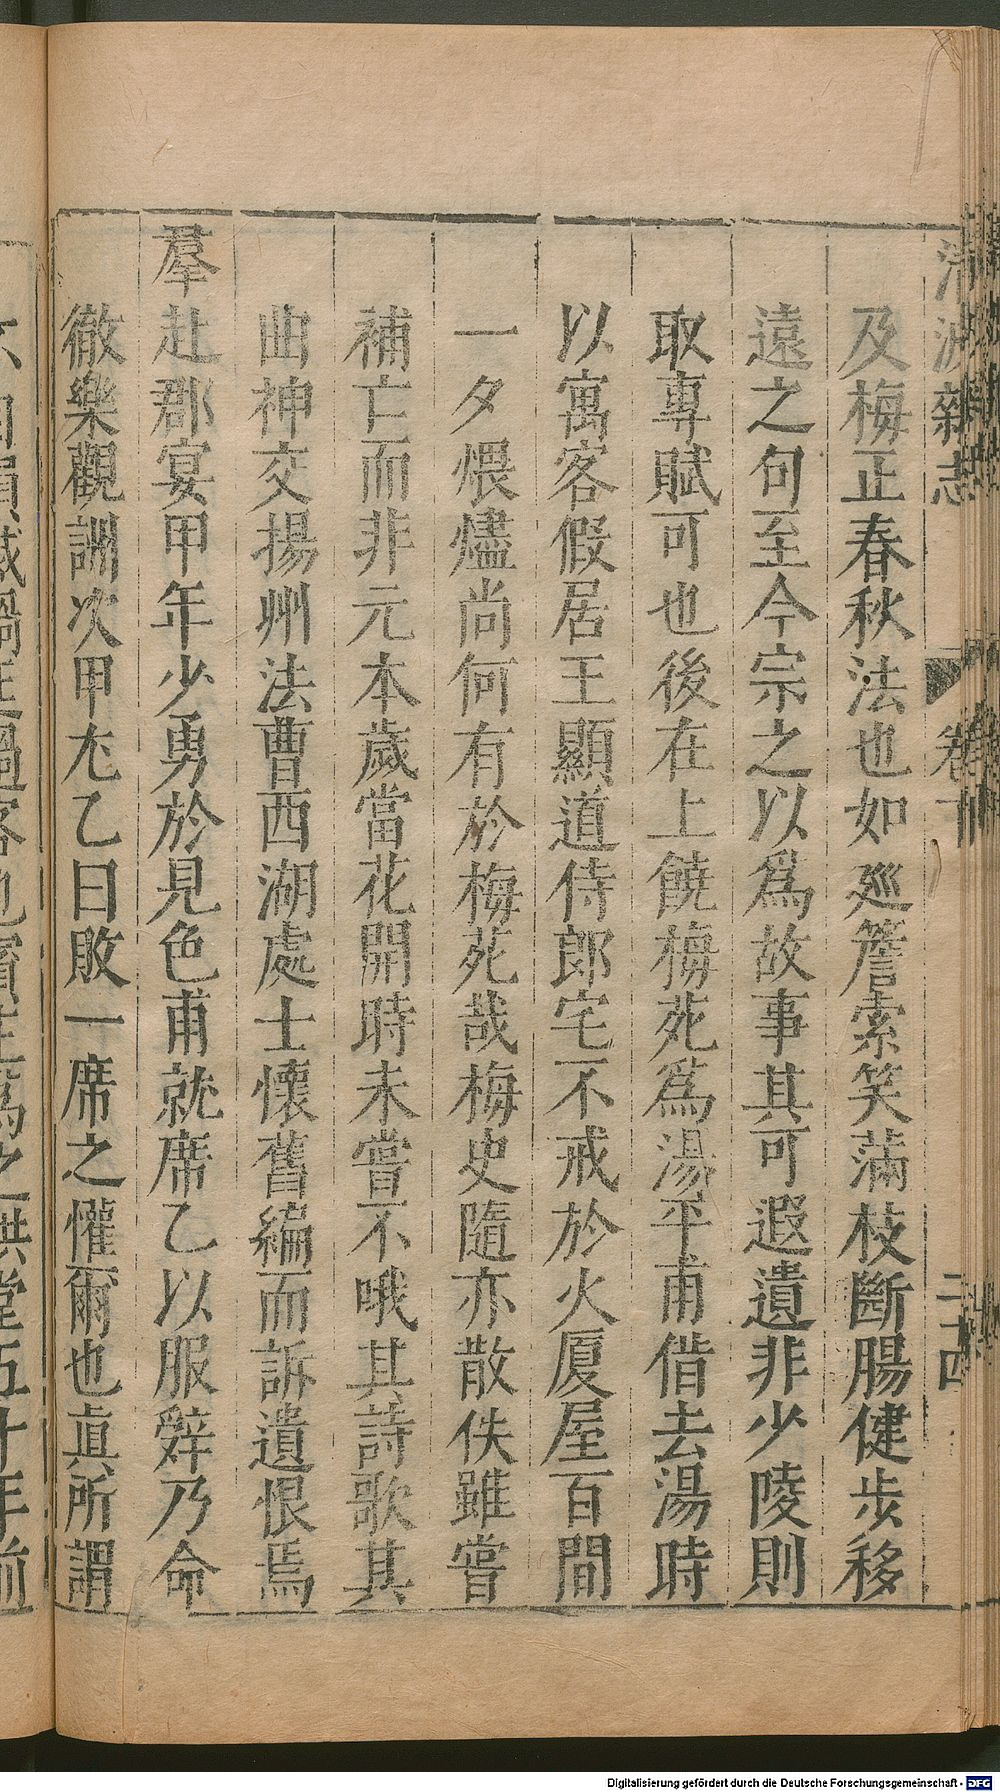 清波雜志 卷下 二十四
及梅正春秋法也如廵簷索笑滿枝斷腸健步移
遠之句至今宗之以爲故事其可遐遺非少陵則
取專賦可也後在上饒梅苑爲湯平甫借去湯時
以寓客假居王顯道侍郎宅不戒於火厦屋百間
一夕煨燼尚何有於梅苑哉梅史隨亦散佚雖嘗
補亡而非元本歲當花開時未嘗不哦其詩歌其
曲神交揚州法曹西湖處士懷舊編而訴遺恨焉
羣赴郡宴甲年少勇於見色甫就席乙以服辤乃命
徹樂觀詶次甲尤乙曰敗一席之懽爾也眞所謂
Digitalisierung gefördert durch die Deutsche Forschungsgemeinschaft - DFG